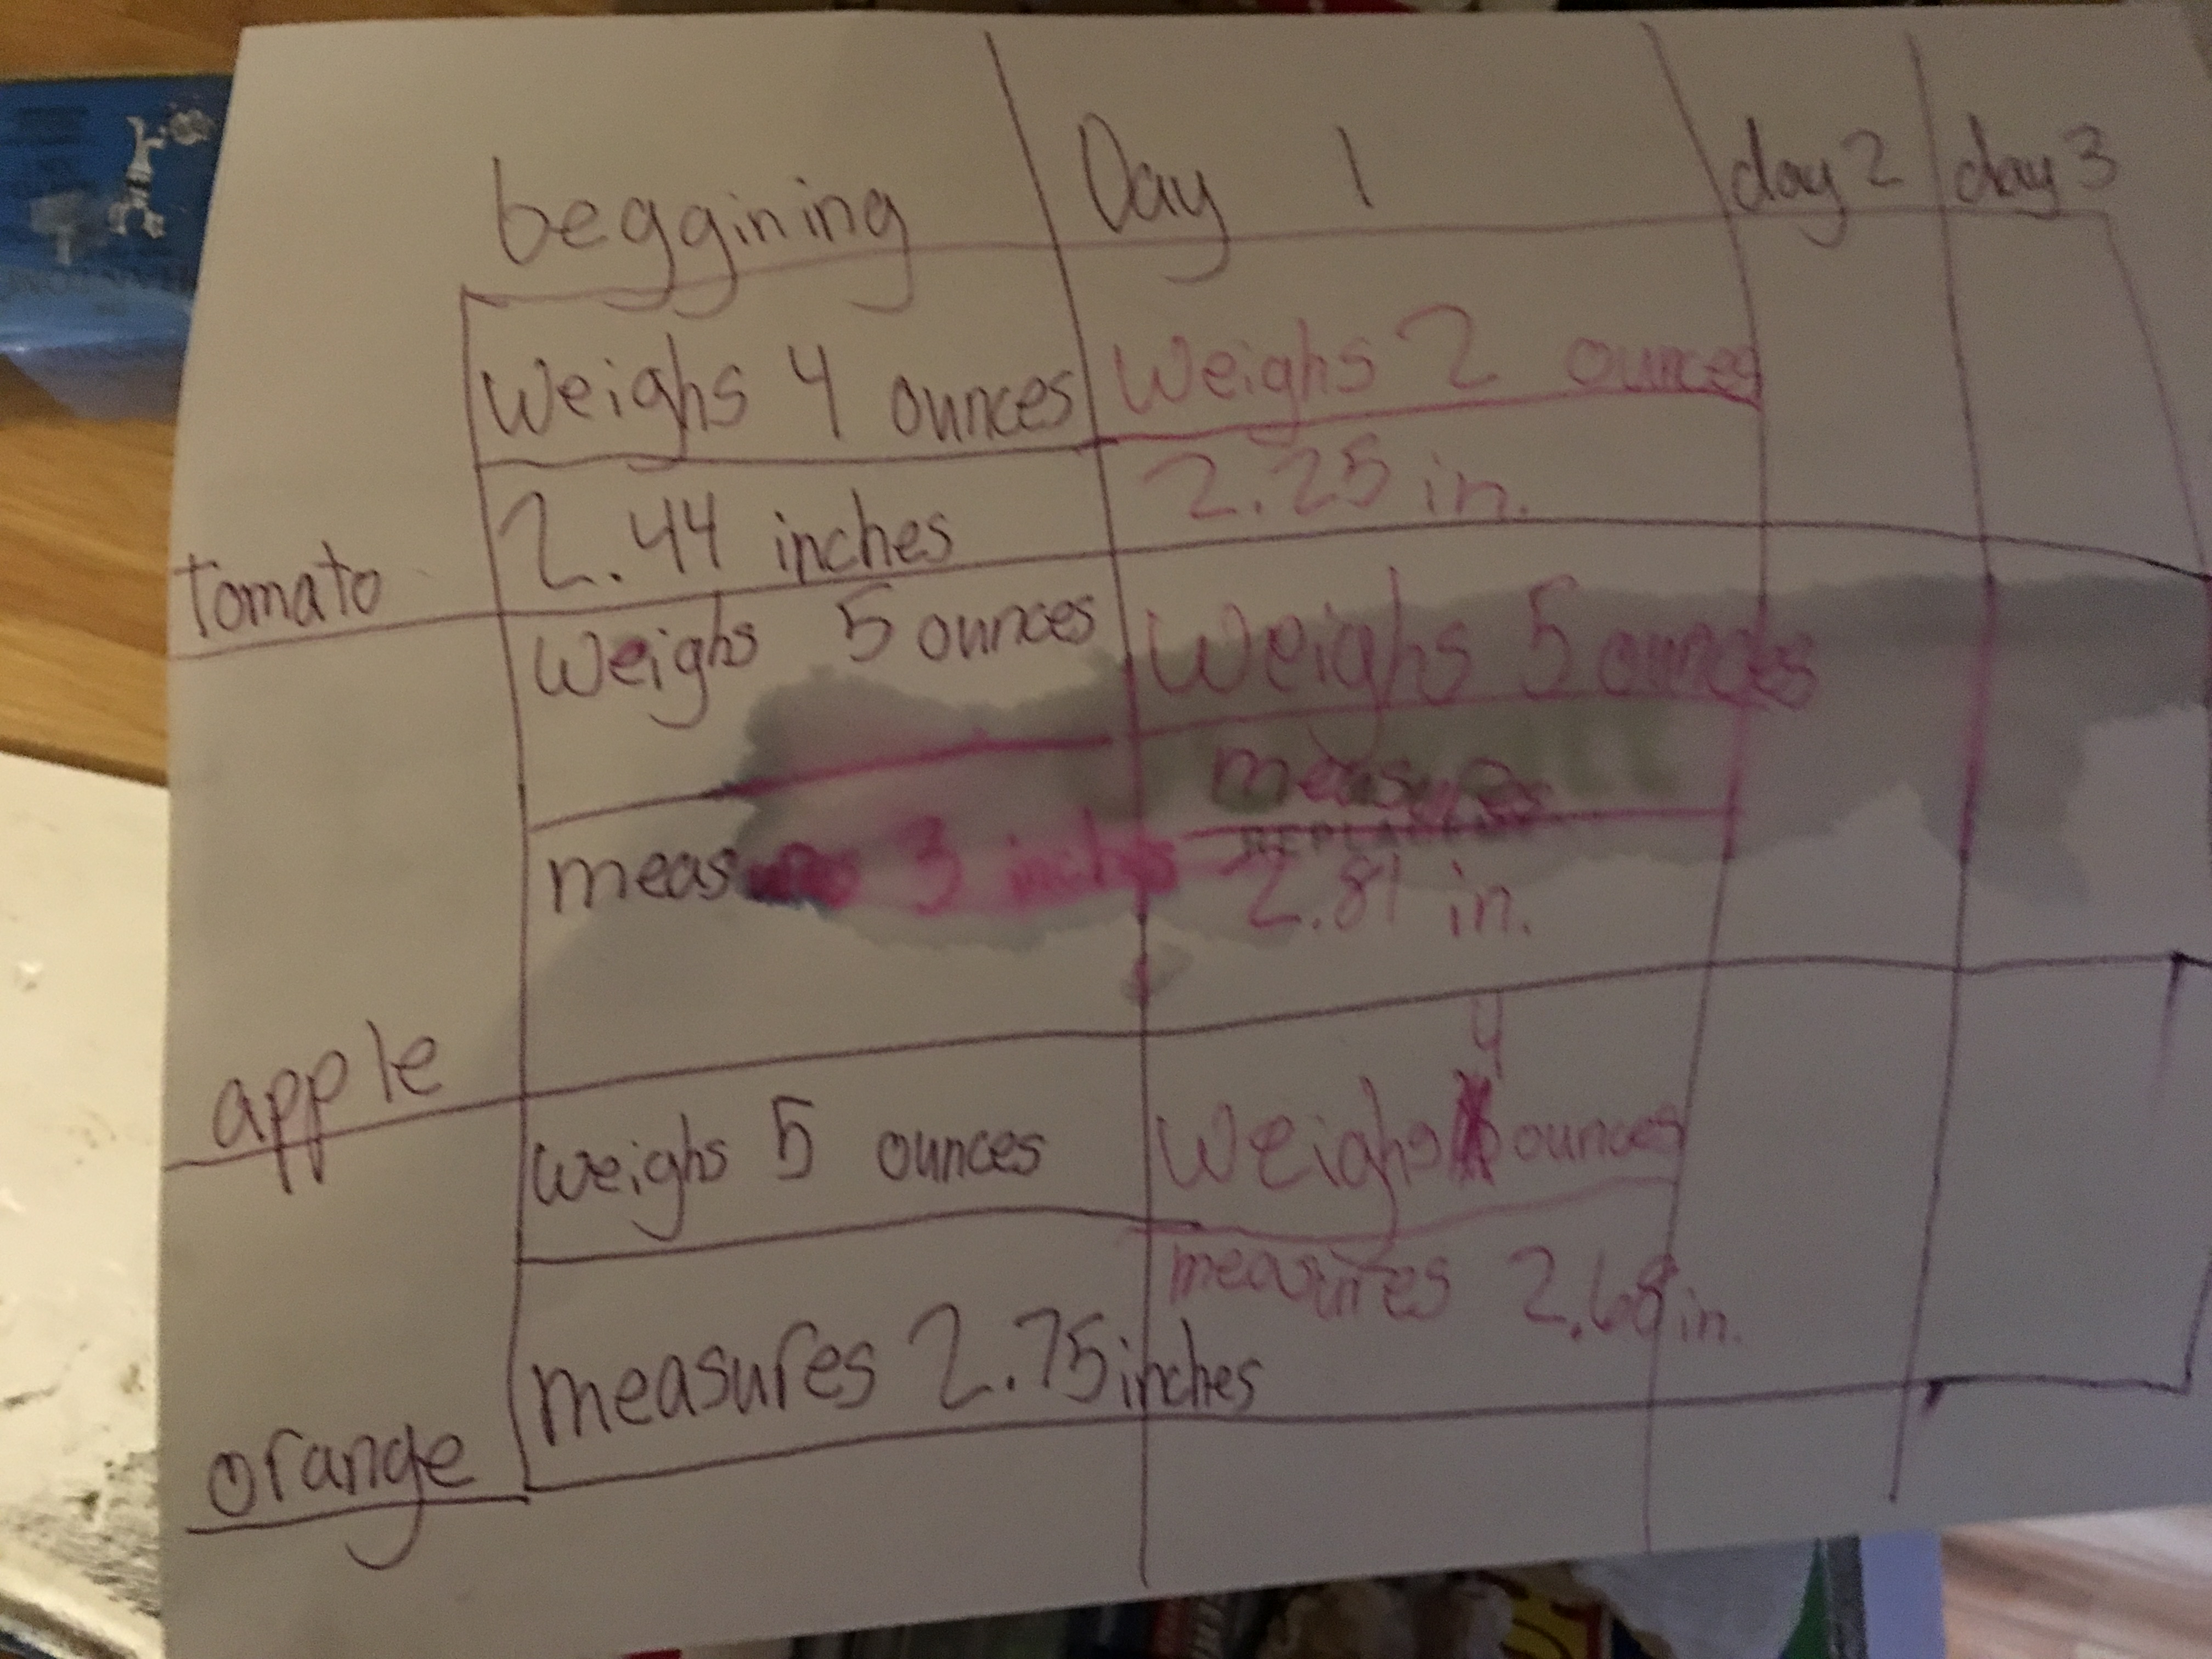 beggining Day 1 day 2 day 3
Weighs 4 ounces Weighs 2 ounces
2.44 inches 2.25 in.
tomato
Weighs 5 ounces Weighs 5 ounces
measures 3 inches measures
2.81 in.
apple
4
weighs 5 ounces Weighs ounces
measures 2.75 inches measures 2.68 in.
orange